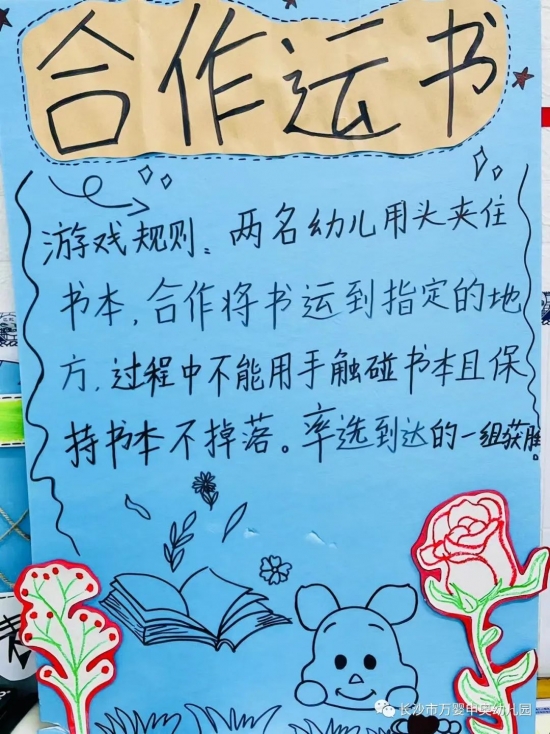 合作运书
游戏规则：两名幼儿用头夹住
书本，合作将书运到指定的地
方，过程中不能用手触碰书本且保
持书本不掉落。率选到达的一组获胜。
长沙市万婴中英幼儿园